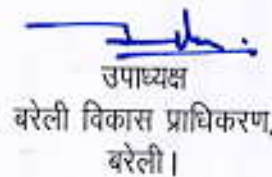 उपाध्यक्ष
बरेली विकास प्राधिकरण,
बरेली।